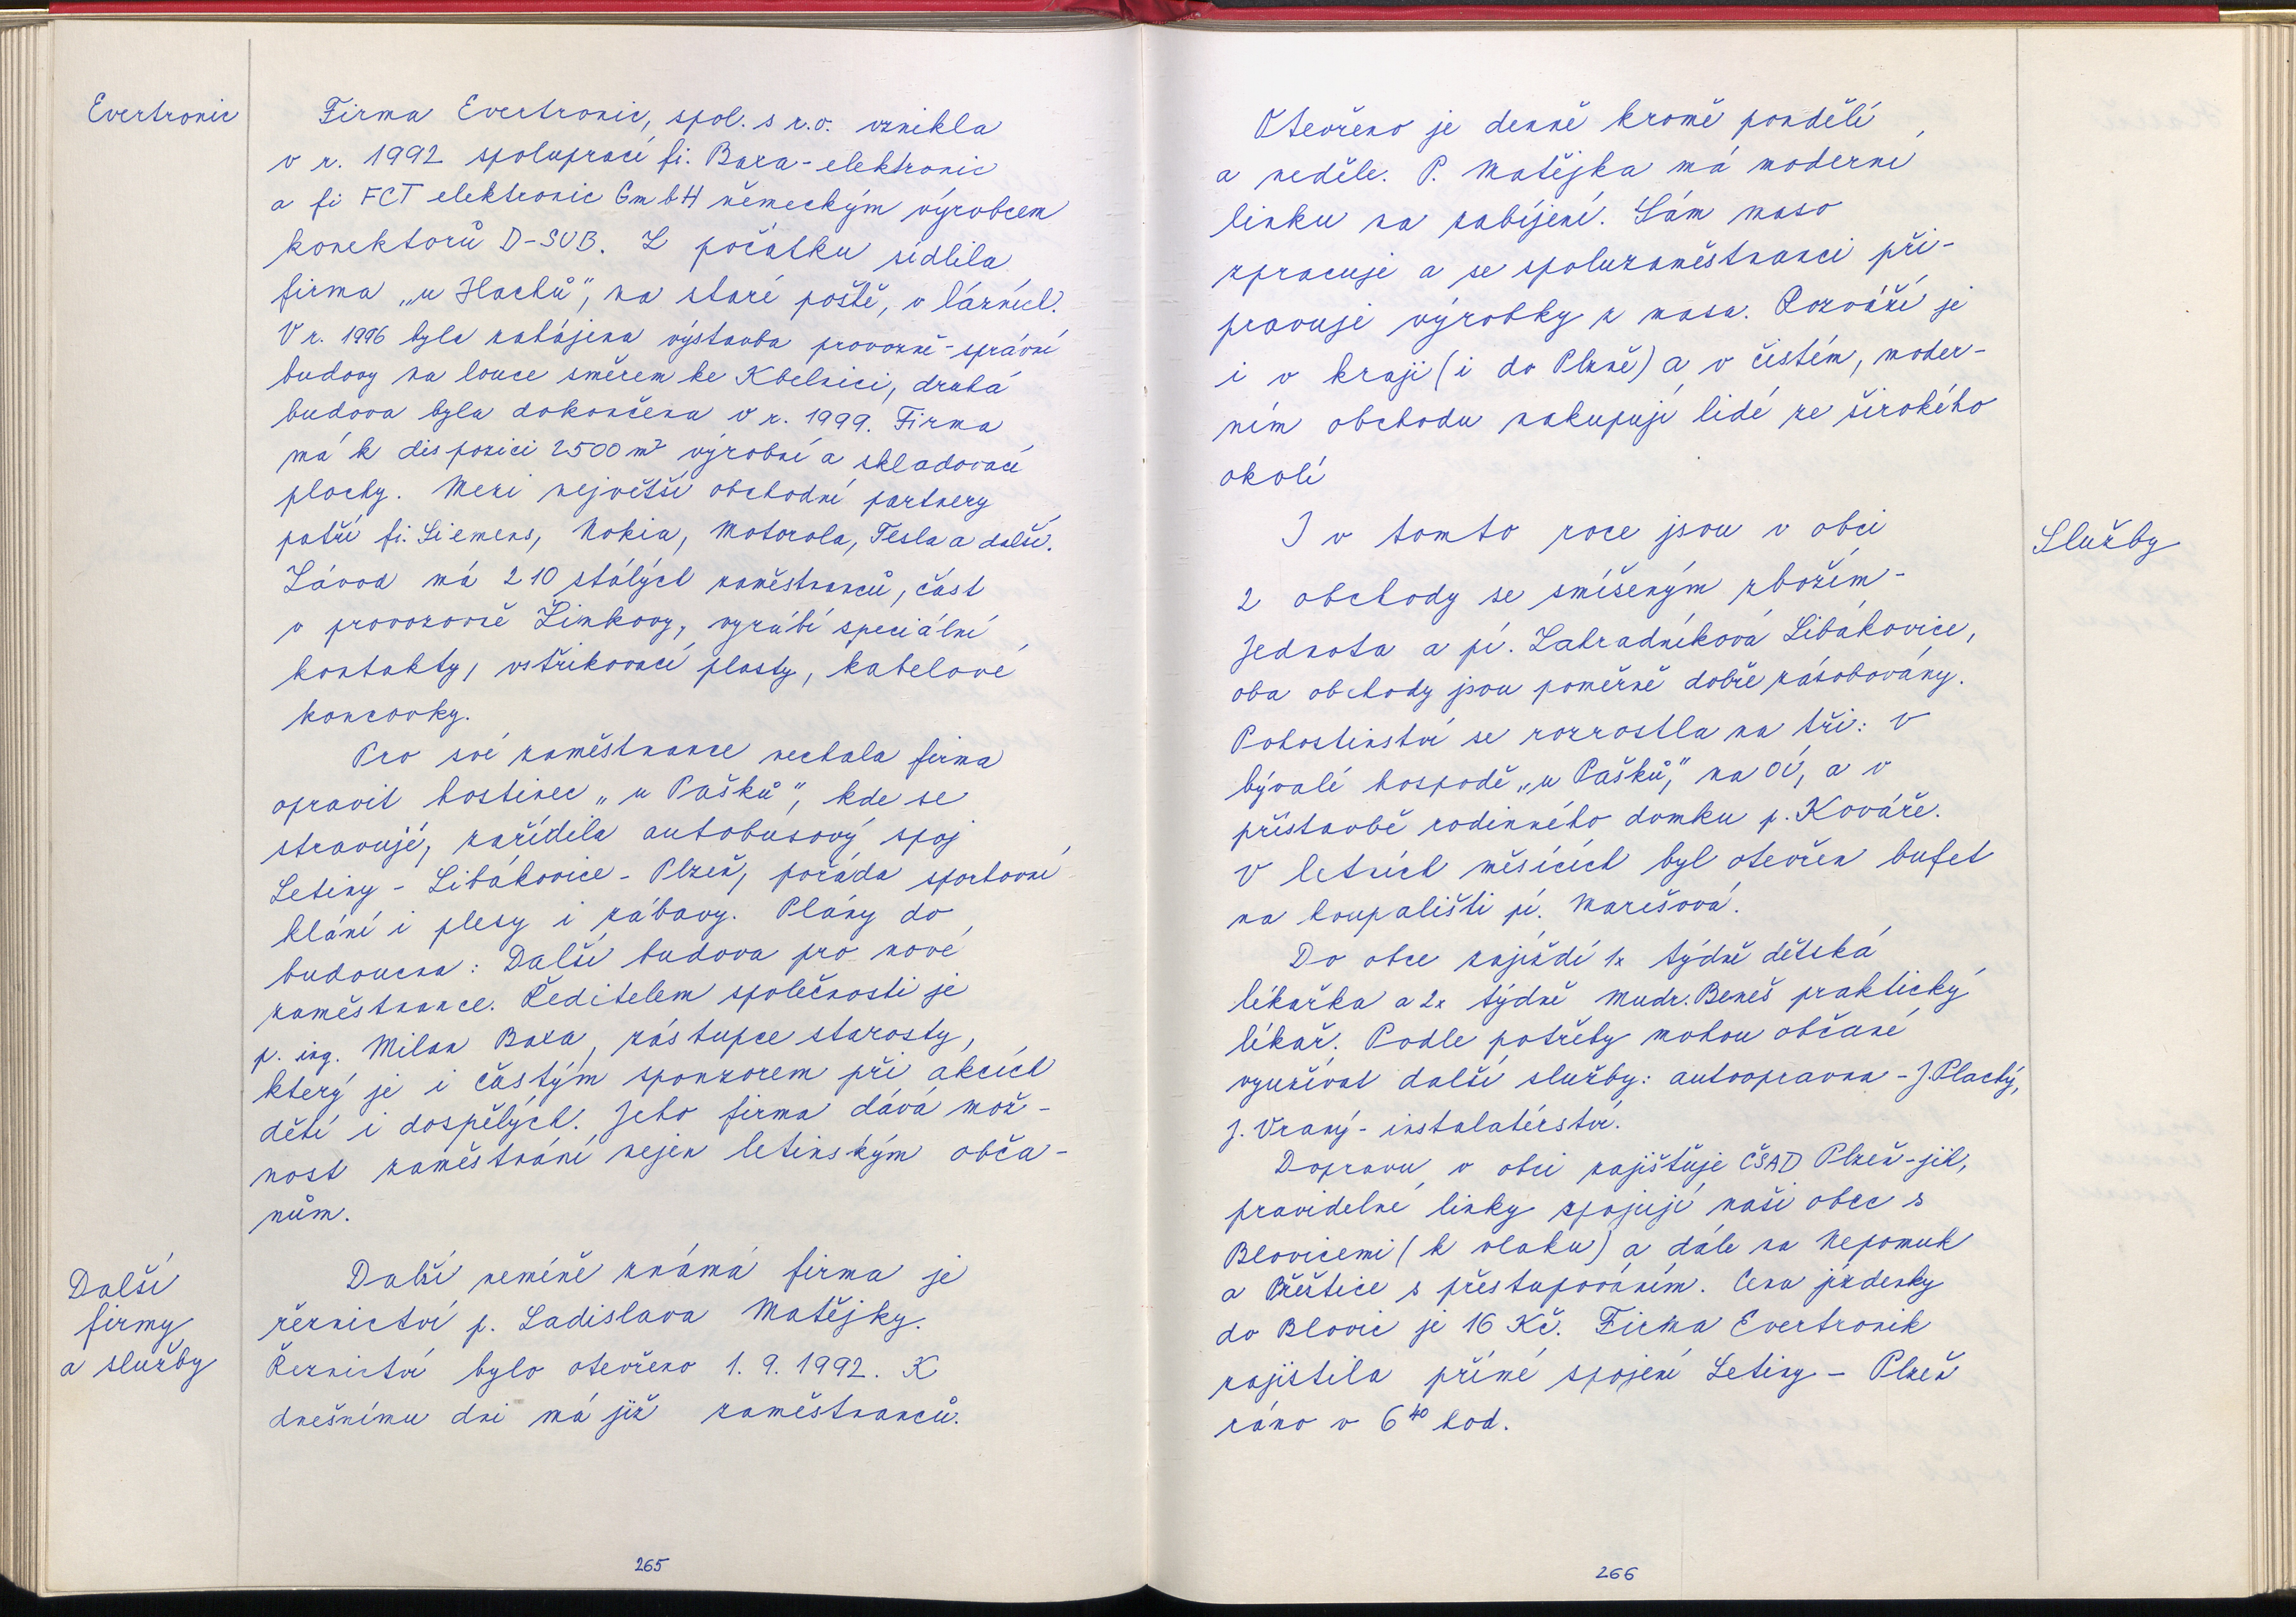 Evertronic
Firma Evertronic, spol. s r.o. vznikla
v r. 1992 spoluprací fi. Baxa-elektronic
a fi FCT elektronic GmbH německým výrobcem
konektorů D-SUB. Z počátku sídlila
firma „u Hachů", na staré poště, v lázních.
V r. 1996 byla zahájena výstavba provozně-správní
budovy na louce směrem ke Kbelnici, druhá
budova byla dokončena v r. 1999. Firma
má k dispozici 2500 m² výrobní a skladovací
plochy. Mezi největší obchodní partnery
patří fi. Siemens, Nokia, Motorola, Tesla a další.
Závod má 210 stálých zaměstnanců, část
v provozovně Žinkovy, vyrábí speciální
kontakty, vstřikovací plasty, kabelové
koncovky.
Pro své zaměstnance nechala firma
opravit hostinec „u Pašků", kde se
stravují, zařídila autobusový spoj
Letiny - Libákovice - Plzeň, pořádá sportovní
klání i plesy i zábavy. Plány do
budoucna: Další budova pro nové
zaměstnance. Ředitelem společnosti je
p. ing. Milan Baxa, zástupce starosty,
který je i častým sponzorem při akcích
dětí i dospělých. Jeho firma dává mož-
nost zaměstnání nejen letinským obča-
nům.
Další
firmy
a služby
Další neméně známá firma je
řeznictví p. Ladislava Matějky.
Řeznictví bylo otevřeno 1. 9. 1992. K
dnešnímu dni má již zaměstnanců.
265
Otevřeno je denně kromě pondělí
a neděle. P. Matějka má moderní
linku na zabíjení. Sám maso
zpracuje a se spoluzaměstnanci při-
pravuje výrobky z masa. Rozváží je
i v kraji (i do Plzně) a v čistém, moder-
ním obchodu nakupují lidé ze širokého
okolí
Služby
I v tomto roce jsou v obci
2 obchody se smíšeným zbožím -
Jednota a pí. Zahradníková Libákovice,
oba obchody jsou poměrně dobře zásobovány.
Pohostinství se rozrostla na tři: V
bývalé hospodě „u Pašků", na OÚ, a v
přístavbě rodinného domku p. Kováře.
V letních měsících byl otevřen bufet
na koupališti pí. Marešová.
Do obce zajíždí 1x týdně dětská
lékařka a 2x týdně Mudr. Beneš praktický
lékař. Podle potřeby mohou občané
využívat další služby: autoopravna - J. Plachý,
J. Vraný - instalatérství.
Dopravu v obci zajišťuje ČSAD Plzeň-jih,
pravidelné linky spojují naši obec s
Blovicemi (k vlaku) a dále na Nepomuk
a Přeštice s přestupováním. Cena jízdenky
do Blovic je 16 Kč. Firma Evertronik
zajistila přímé spojení Letiny - Plzeň
ráno v 6⁴⁰ hod.
266